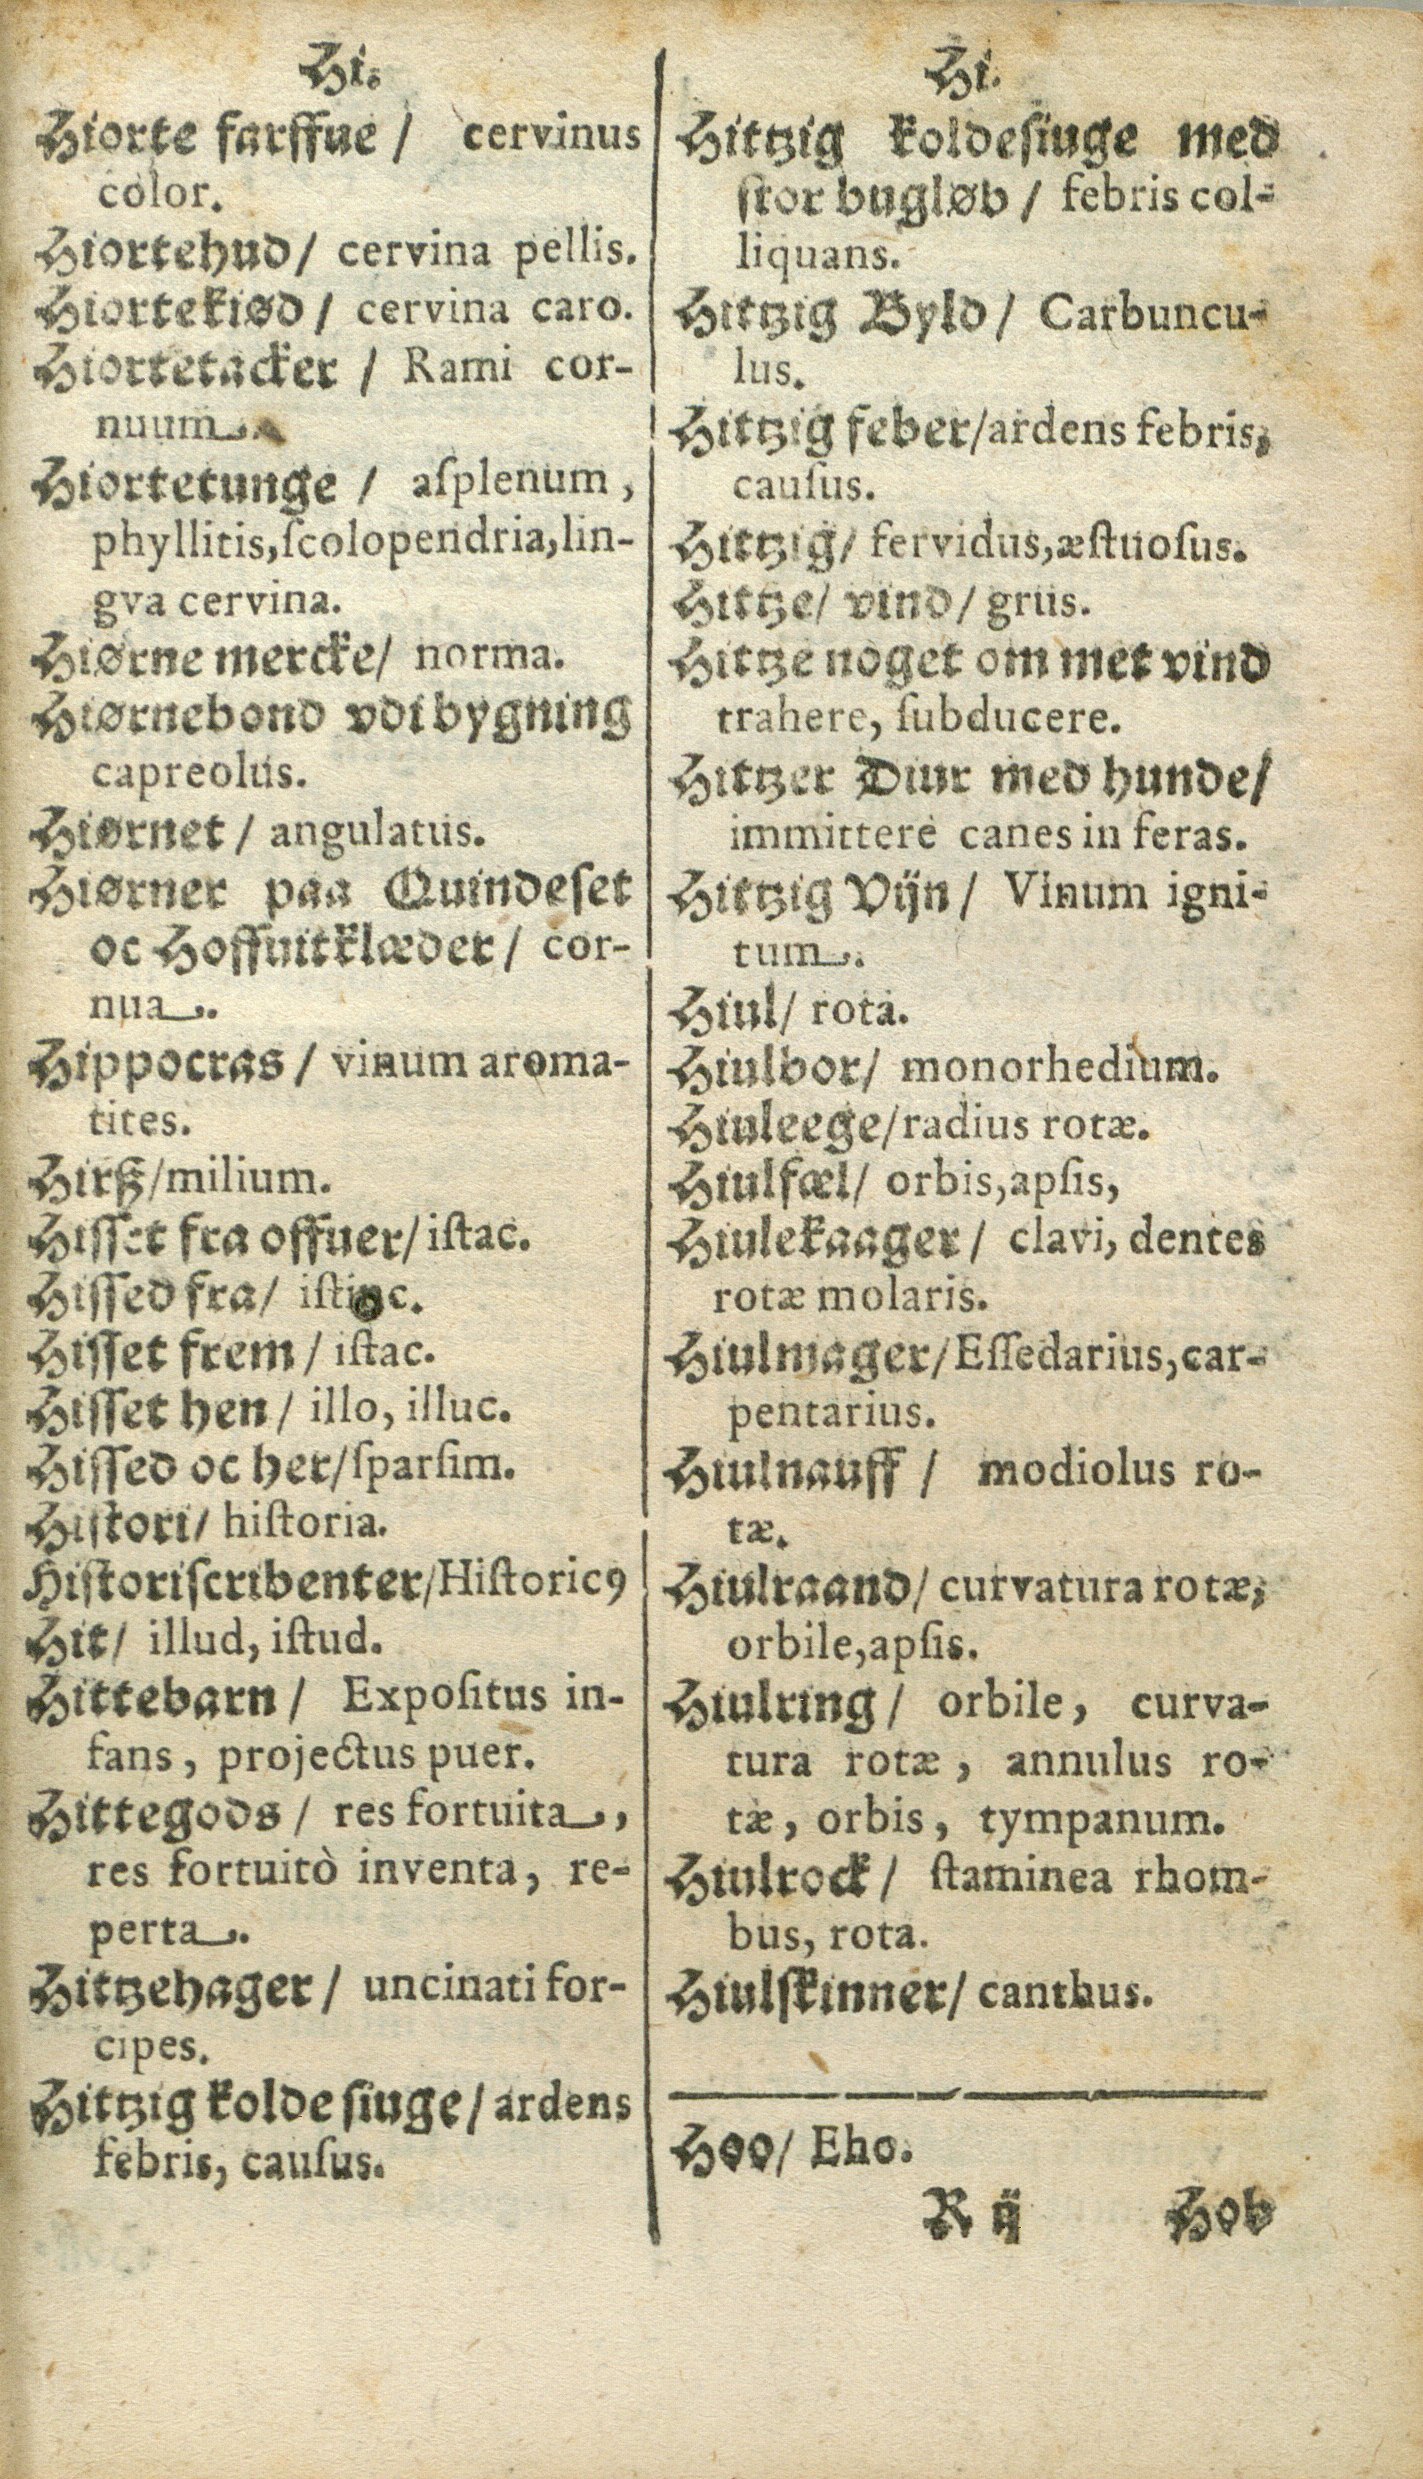 Hi.
Hiorte farffue / cervinus
color.
Hiortehud / cervina pellis.
Hiortekiød / cervina caro.
Hiortetacker / Rami cor-
nuum.
Hiortetunge / aſplenum,
phyllitis, ſcolopendria, lin-
gva cervina.
Hiørne mercke / norma.
Hiørnebond vdi bygning
capreolus.
Hiørnet / angulatus.
Hiørner paa Quindeſet
oc Hoffuitklæder / cor-
nua.
Hippocras / vinum aroma-
tites.
Hirß / milium.
Hiſſet fra offuer / iſtac.
Hiſſed fra / iſtinc.
Hiſſet frem / iſtac.
Hiſſet hen / illo, illuc.
Hiſſed oc her / ſparſim.
Hiſtori / hiſtoria.
Hiſtoriſcribenter / Hiſtoricꝰ
Hit / illud, iſtud.
Hittebarn / Expoſitus in-
fans, projectus puer.
Hittegods / res fortuita,
res fortuitò inventa, re-
perta.
Hitzehager / uncinati for-
cipes.
Hitzig kolde ſiuge / ardens
febris, cauſus.
Hi.
Hitzig koldeſiuge med
ſtor bugløb / febris col-
liquans.
Hitzig Byld / Carbuncu-
lus.
Hitzig feber / ardens febris,
cauſus.
Hitzig / fervidus, æſtuoſus.
Hitze / vind / grus.
Hitze noget om met vind
trahere, ſubducere.
Hitzer Diur med hunde /
immittere canes in feras.
Hitzig Vijn / Vinum igni-
tum.
Hiul / rota.
Hiulbor / monorhedium.
Hiuleege / radius rotæ.
Hiulfæl / orbis, apſis,
Hiulekaager / clavi, dentes
rotæ molaris.
Hiulmager / Eſſedarius, car-
pentarius.
Hiulnauff / modiolus ro-
tæ.
Hiulraand / curvatura rotæ,
orbile, apſis.
Hiulring / orbile, curva-
tura rotæ, annulus ro-
tæ, orbis, tympanum.
Hiulrock / ſtaminea rhom-
bus, rota.
Hiulſkinner / canthus.
Hoo / Eho.
R ij Hob